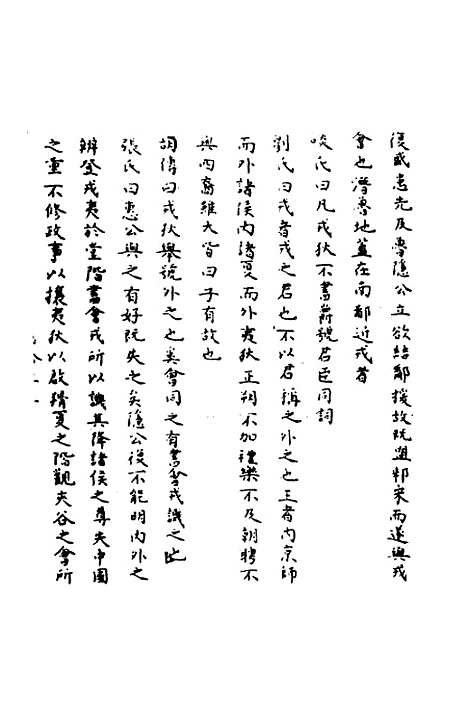 復或意先及魯隱公立欲結鄰援故既盟邾宋而遂與戎
會也潛魯地蓋在南鄙近戎者
啖氏曰凡戎狄不書爵號君臣同詞
劉氏曰戎者戎之君也不以君稱之外之也王者内京師
而外諸侯内諸夏而外夷狄正朔不加禮樂不及朝聘不
與四裔雖大皆曰子有故也
胡傳曰戎狄舉號外之也奚會同之有書會戎譏之也
張氏曰惠公與之有好既失之矣隱公後不能明内外之
辨登戎夷於堂階書會戎所以譏其降諸侯之尊失中國
之重不修政事以攘夷狄以啟猾夏之階觀夾谷之會所